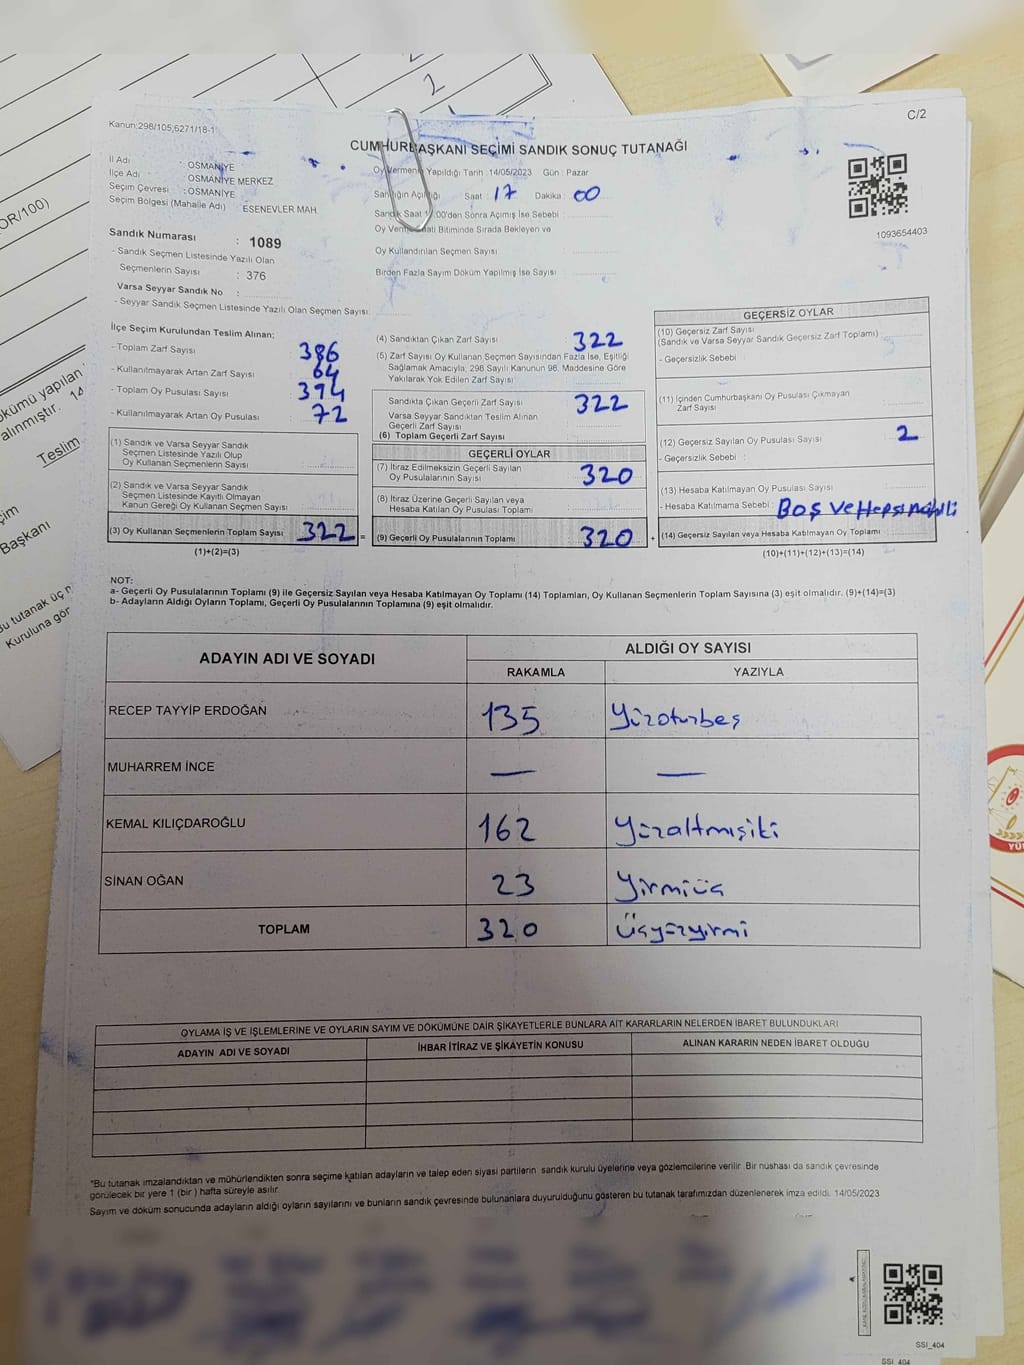 2
2
OR/100)
C/2
Kanun:298/105,6271/18-1
CUMHURBAŞKANI SEÇİMİ SANDIK SONUÇ TUTANAĞI
İl Adı : OSMANİYE
İlçe Adı : OSMANİYE MERKEZ
Seçim Çevresi : OSMANİYE
Seçim Bölgesi (Mahalle Adı) : ESENEVLER MAH.
Sandık Numarası : 1089
- Sandık Seçmen Listesinde Yazılı Olan
Seçmenlerin Sayısı : 376
Varsa Seyyar Sandık No :
- Seyyar Sandık Seçmen Listesinde Yazılı Olan Seçmen Sayısı:
Oy Vermenin Yapıldığı Tarih :14/05/2023 Gün : Pazar
Sandığın Açıldığı Saat : 17 Dakika : 00
Sandık Saat 17:00'den Sonra Açılmış İse Sebebi :
Oy Verme Bitiminde Sırada Bekleyen ve
Oy Kullandırılan Seçmen Sayısı
Birden Fazla Sayım Döküm Yapılmış İse Sayısı
1093654403
İlçe Seçim Kurulundan Teslim Alınan;
- Toplam Zarf Sayısı 386
- Kullanılmayarak Artan Zarf Sayısı 64
- Toplam Oy Pusulası Sayısı 394
- Kullanılmayarak Artan Oy Pusulası 72
(1) Sandık ve Varsa Seyyar Sandık
Seçmen Listesinde Yazılı Olup
Oy Kullanan Seçmenlerin Sayısı
(2) Sandık ve Varsa Seyyar Sandık
Seçmen Listesinde Kayıtlı Olmayan
Kanun Gereği Oy Kullanan Seçmen Sayısı
(3) Oy Kullanan Seçmenlerin Toplam Sayısı 322 =
(1)+(2)=(3)
(4) Sandıktan Çıkan Zarf Sayısı 322
(5) Zarf Sayısı Oy Kullanan Seçmen Sayısından Fazla İse, Eşitliği
Sağlamak Amacıyla, 298 Sayılı Kanunun 98. Maddesine Göre
Yakılarak Yok Edilen Zarf Sayısı
Sandıkta Çıkan Geçerli Zarf Sayısı 322
Varsa Seyyar Sandıktan Teslim Alınan
Geçerli Zarf Sayısı
(6) Toplam Geçerli Zarf Sayısı
GEÇERLİ OYLAR
(7) İtiraz Edilmeksizin Geçerli Sayılan
Oy Pusulalarının Sayısı 320
(8) İtiraz Üzerine Geçerli Sayılan veya
Hesaba Katılan Oy Pusulası Toplamı
(9) Geçerli Oy Pusulalarının Toplamı 320 +
GEÇERSİZ OYLAR
(10) Geçersiz Zarf Sayısı
(Sandık ve Varsa Seyyar Sandık Geçersiz Zarf Toplamı)
- Geçersizlik Sebebi
(11) İçinden Cumhurbaşkanı Oy Pusulası Çıkmayan
Zarf Sayısı
(12) Geçersiz Sayılan Oy Pusulası Sayısı 2
- Geçersizlik Sebebi :
(13) Hesaba Katılmayan Oy Pusulası Sayısı
- Hesaba Katılmama Sebebi : Boş ve Hepsi
(14) Geçersiz Sayılan veya Hesaba Katılmayan Oy Toplamı
(10)+(11)+(12)+(13)=(14)
NOT:
a- Geçerli Oy Pusulalarının Toplamı (9) ile Geçersiz Sayılan veya Hesaba Katılmayan Oy Toplamı (14) Toplamları, Oy Kullanan Seçmenlerin Toplam Sayısına (3) eşit olmalıdır. (9)+(14)=(3)
b- Adayların Aldığı Oyların Toplamı, Geçerli Oy Pusulalarının Toplamına (9) eşit olmalıdır.
ADAYIN ADI VE SOYADI ALDIĞI OY SAYISI
RAKAMLA YAZIYLA
RECEP TAYYİP ERDOĞAN 135 Yüzotuzbeş
MUHARREM İNCE — —
KEMAL KILIÇDAROĞLU 162 Yüzaltmışiki
SİNAN OĞAN 23 Yirmiüç
TOPLAM 320 Üçyüzyirmi
OYLAMA İŞ VE İŞLEMLERİNE VE OYLARIN SAYIM VE DÖKÜMÜNE DAİR ŞİKAYETLERLE BUNLARA AİT KARARLARIN NELERDEN İBARET BULUNDUKLARI
ADAYIN ADI VE SOYADI İHBAR İTİRAZ VE ŞİKAYETİN KONUSU ALINAN KARARIN NEDEN İBARET OLDUĞU
"Bu tutanak imzalandıktan ve mühürlendikten sonra seçime katılan adayların ve talep eden siyasi partilerin sandık kurulu üyelerine veya gözlemcilerine verilir. Bir nüshası da sandık çevresinde
görülecek bir yere 1 (bir ) hafta süreyle asılır.
Sayım ve döküm sonucunda adayların aldığı oyların sayılarını ve bunların sandık çevresinde bulunanlara duyurulduğunu gösteren bu tutanak tarafımızdan düzenlenerek imza edildi. 14/05/2023
SSI_404
SSI_404
dökümü yapılan
alınmıştır. 14
Teslim
Başkanı
Bu tutanak üç
Kuruluna gör